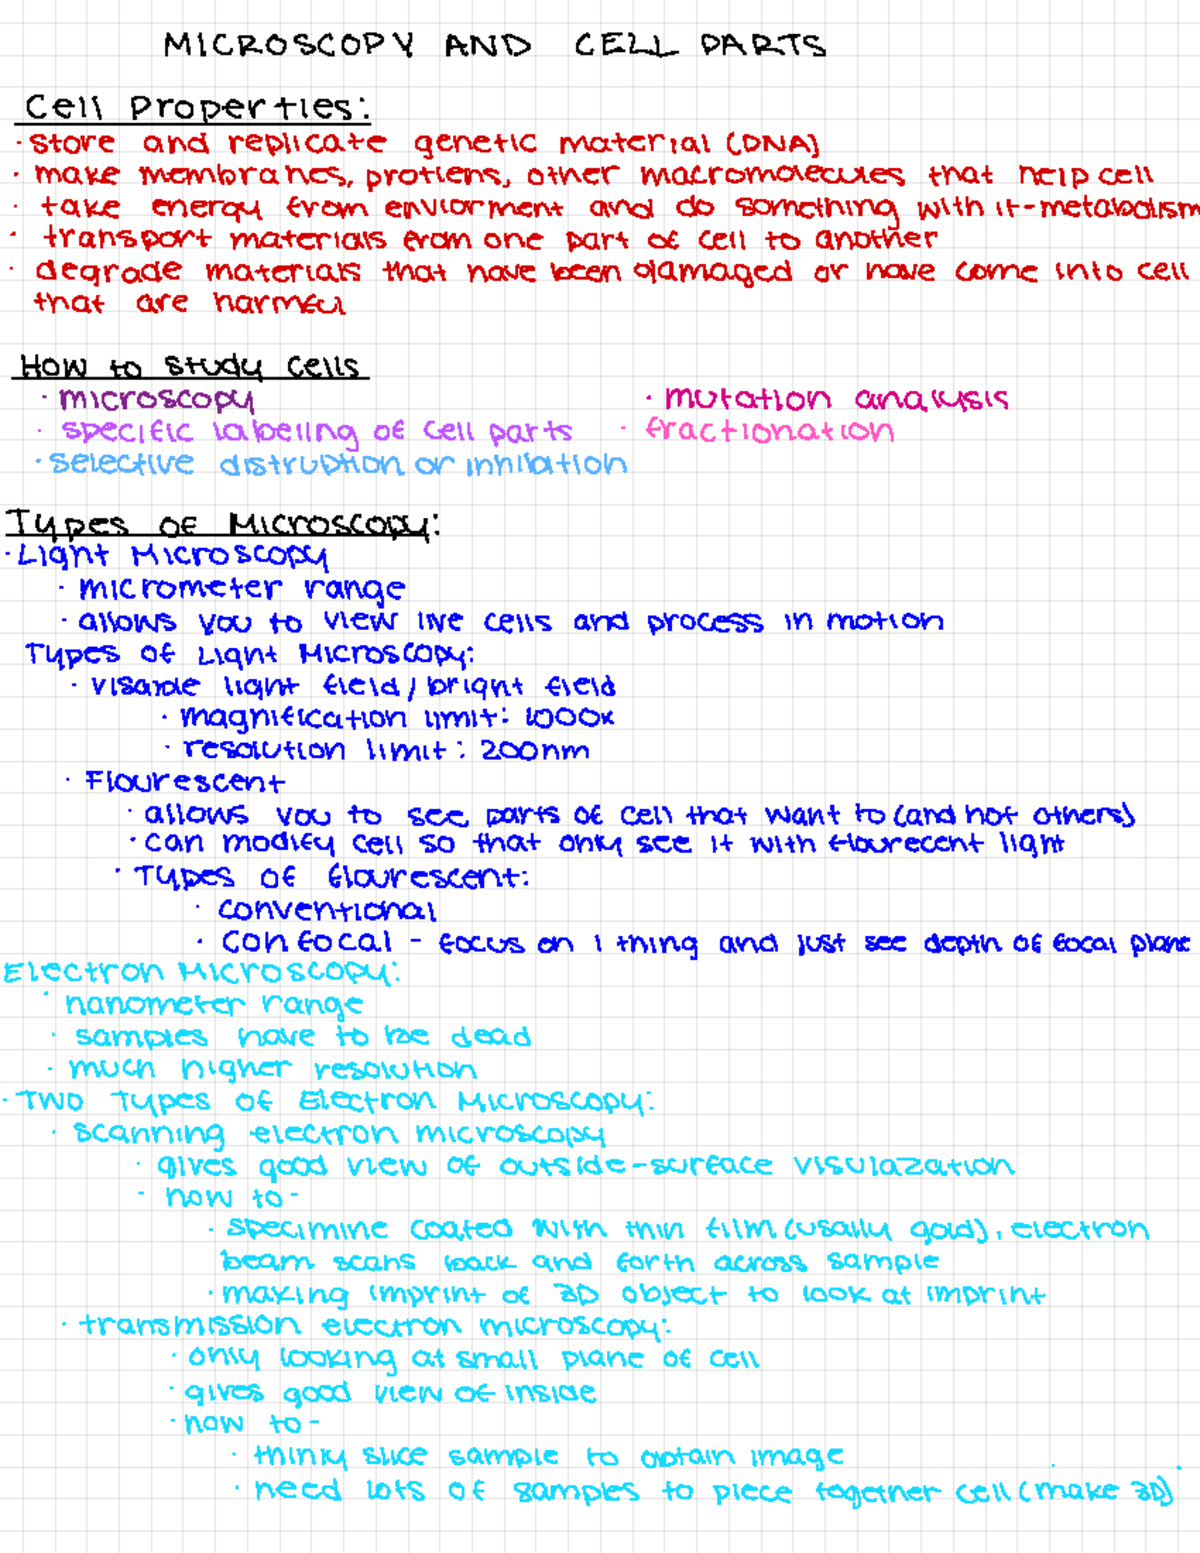 MICROSCOPY AND CELL PARTS
Cell Properties:
· store and replicate genetic material (DNA)
· make membranes, protiens, other macromolecules that help cell
· take energy from enviorment and do something with it - metabolism
· transport materials from one part of cell to another
· degrade materials that have been damaged or have come into cell
that are harmful
How to Study Cells
· microscopy · mutation analysis
· specific labeling of cell parts · fractionation
· selective distruption or inhibation
Types of Microscopy:
· Light Microscopy
· micrometer range
· allows you to view live cells and process in motion
Types of Light Microscopy:
· visable light field / bright field
· magnification limit: 1000x
· resolution limit: 200nm
· Flourescent
· allows you to see parts of cell that want to (and not others)
· can modify cell so that only see it with flourecent light
· Types of flourescent:
· conventional
· confocal - focus on 1 thing and just see depth of focal plane
Electron Microscopy:
· nanometer range
· samples have to be dead
· much higher resolution
· Two Types of Electron Microscopy:
· scanning electron microscopy
· gives good view of outside - surface visulazation
· how to -
· specimine coated with thin film (usally gold), electron
beam scans back and forth across sample
· making imprint of 3D object to look at imprint
· transmission electron microscopy:
· only looking at small plane of cell
· gives good view of inside
· how to -
· thinly slice sample to obtain image
· need lots of samples to piece together cell (make 3D)